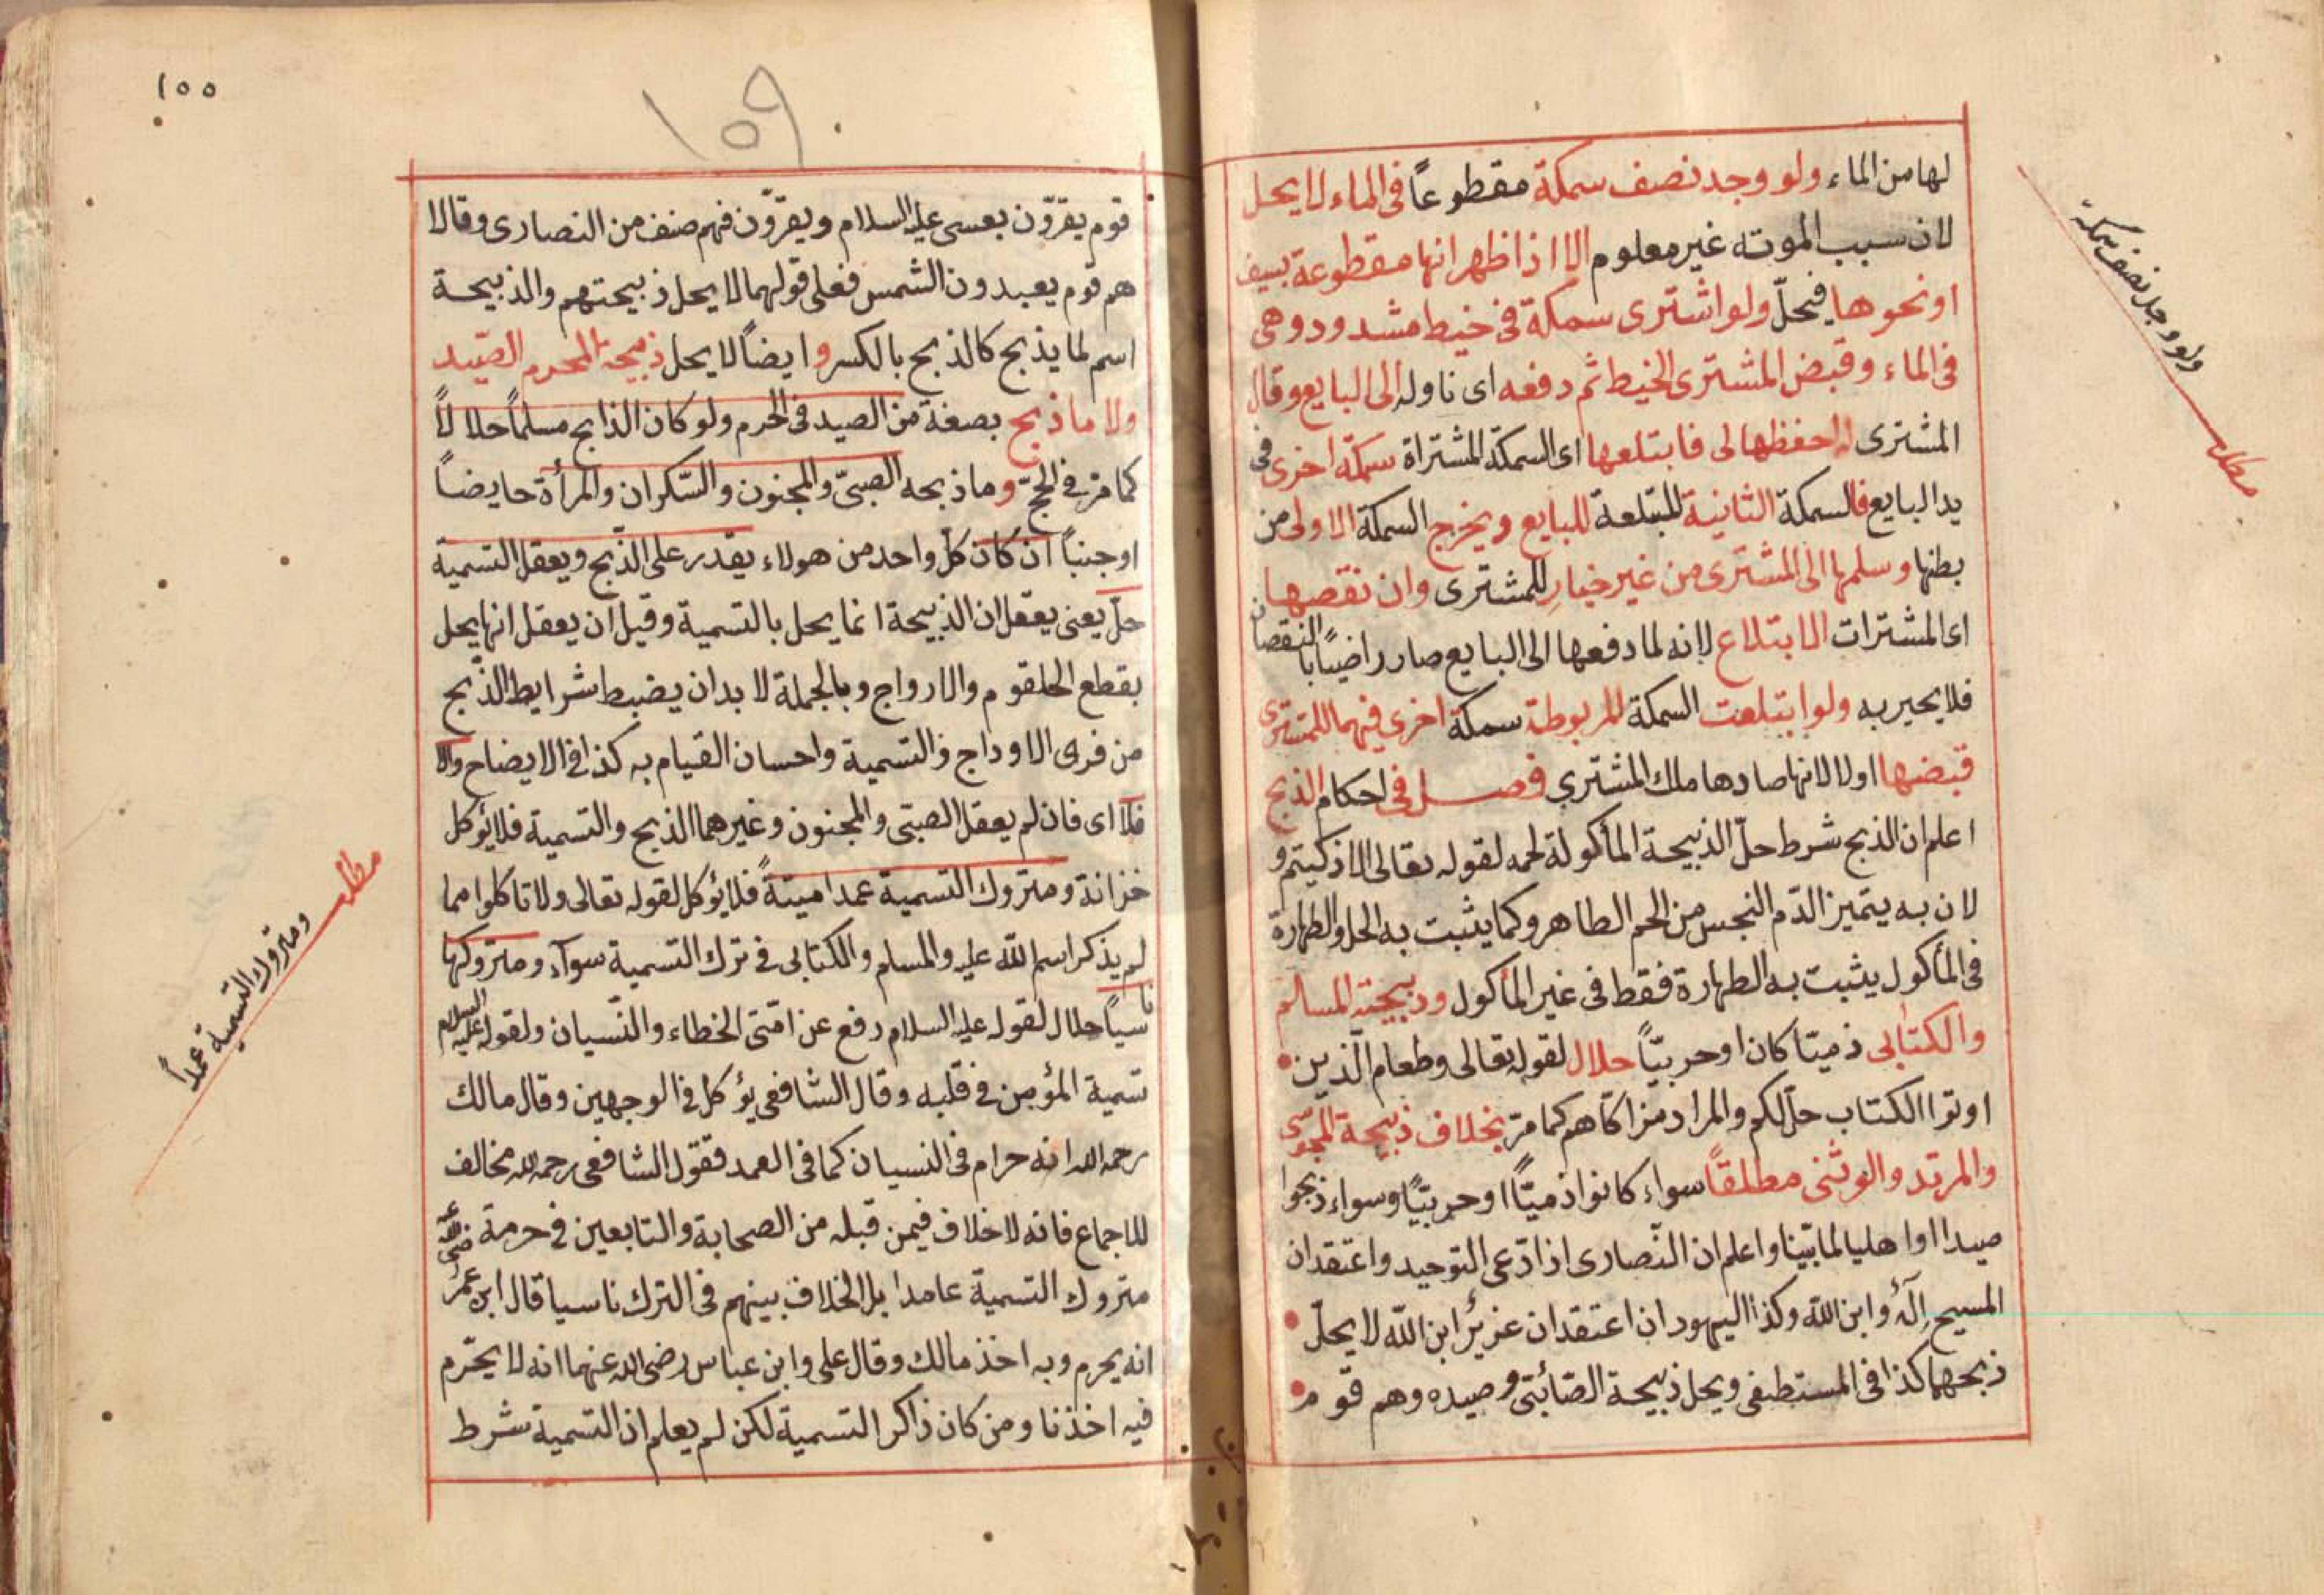 لها من الماء ولو وجد نصف سمكة مقطوعاً في الماء لا يحل
لان سبب الموته غير معلوم الا اذا ظهر انها مقطوعة بسيف
او نحوها فيحلّ ولو اشترى سمكة في خيط مشدود وهى
في الماء وقبض المشترى الخيط ثم دفعه اى ناوله الى البايع وقال
المشترى له احفظها لى فابتلعها اى السمكة المشتراة سمكة اخرى فى
يد البايع فالسمكة الثانية المبتلعة للبايع ويخرج السمكة الاولى من
بطنها وسلمها الى المشترى من غير خيارٍ للمشترى وان نقصها
اى المشترات الابتلاع لانه لما دفعها الى البايع صار راضيًا با النقصان
فلا يحير به ولو ابتلعت السمكة المربوطة سمكة اخرى فهما للمشترى
قبضها اولا لانها صادها ملك المشترى فصل في احكام الذبح
اعلم ان الذبح شرط حلّ الذبيحة المأكولة لحمه لقوله تعالى الا ذكيتم و
لان به يتميز الدّم النجس من الحم الطاهر وكما يثبت به الحل والطهارة
في المأكول يثبت به الطهارة فقط في غير المأكول وذبيحة المسلم
والكتابى ذميّا كان او حربيّاً حلال لقوله تعالى وطعام الّذين
اوتوا الكتاب حلّ لكم والمراد مزاكّاهم كما مرّ بخلاف ذبيحة المجوسى
والمرتد والوثنى مطلقاً سواء كانوا ذميّاً او حربيّاً وسواء ذبحوا
صيدا او اهليا لما بيّنا واعلم ان النّصارى اذا ادّعى التوحيد واعتقد ان
المسيح إله وابن اللّه وكذا اليهود ان اعتقد ان عزيرًا ابن اللّه لا يحلّ
ذبحهما كذا في المستصفى ويحل ذبيحة الصّابئى وصيده وهم قوم
ولو وجد نصف سمكة
مطلب
١٥٥
١٥٩
قوم يقرّون بعيسى عليه السلام ويقرّون فهم صنف من النصارى وقالا
هم قوم يعبدون الشمس فعلى قولهما لا يحل ذبيحتهم والذبيحة
اسم لما يذبح كالذبح بالكسر وايضاً لا يحل ذبيحة المحرم الصّيد
ولا ما ذبح بصفة من الصيد في الحرم ولو كان الذابح مسلماً حلالاً
كما مرّ في الحجّ وما ذبحه الصبىّ والمجنون والسّكران والمرأة حايضاً
او جنباً ان كان كلّ واحد من هولاء يقدر على الذّبح ويعقل التسمية
حلّ يعنى يعقل ان الذبيحة انما يحل بالتسمية وقيل ان يعقل انها يحل
بقطع الحلقوم والارواج وبالجملة لا بد ان يضبط شرايط الذّبح
من فرى الاوداج والتسمية واحسان القيام به كذا في الايضاح والا
فلا اى فان لم يعقل الصبىّ والمجنون وغيرهما الذبح والتسمية فلا يؤكل
خزانة ومتروك التسمية عمدا ميتةً فلا يؤكل لقوله تعالى ولا تاكلوا مما
لم يذكر اسم اللّه عليه والمسلم والكتابى في ترك التسمية سوآء ومتروكها
ناسياً حلال لقوله عليه السلام رفع عن امّتى الخطاء والنّسيان ولقوله عليه السلام
تسمية المؤمن في قلبه وقال الشافعى يؤكل في الوجهين وقال مالك
رحمه الله انه حرام في النسيان كما في العمد فقول الشافعى رحمه الله مخالف
للاجماع فانه لا خلاف فيمن قبله من الصحابة والتابعين في حرمة
متروك التسمية عامدا بل الخلاف بينهم في الترك ناسيا قال ابن عمر رضى الله عنه
انه يحرم وبه اخذ مالك وقال على وابن عباس رضى الله عنهما انه لا يحّرم
فيه اخذنا ومن كان ذاكر التسمية لكن لم يعلم ان التسمية شرط
مطلب
ومتروك التسمية عمداً